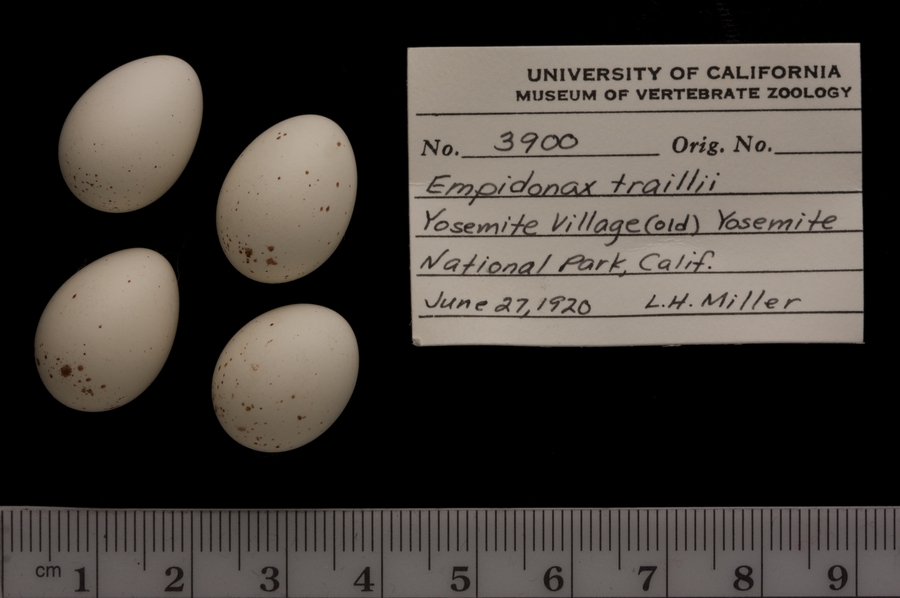 UNIVERSITY OF CALIFORNIA
MUSEUM OF VERTEBRATE ZOOLOGY
No. 3900 Orig. No.
Empidonax traillii
Yosemite Village (old) Yosemite
National Park, Calif.
June 27, 1920 L.H. Miller
cm 1 2 3 4 5 6 7 8 9